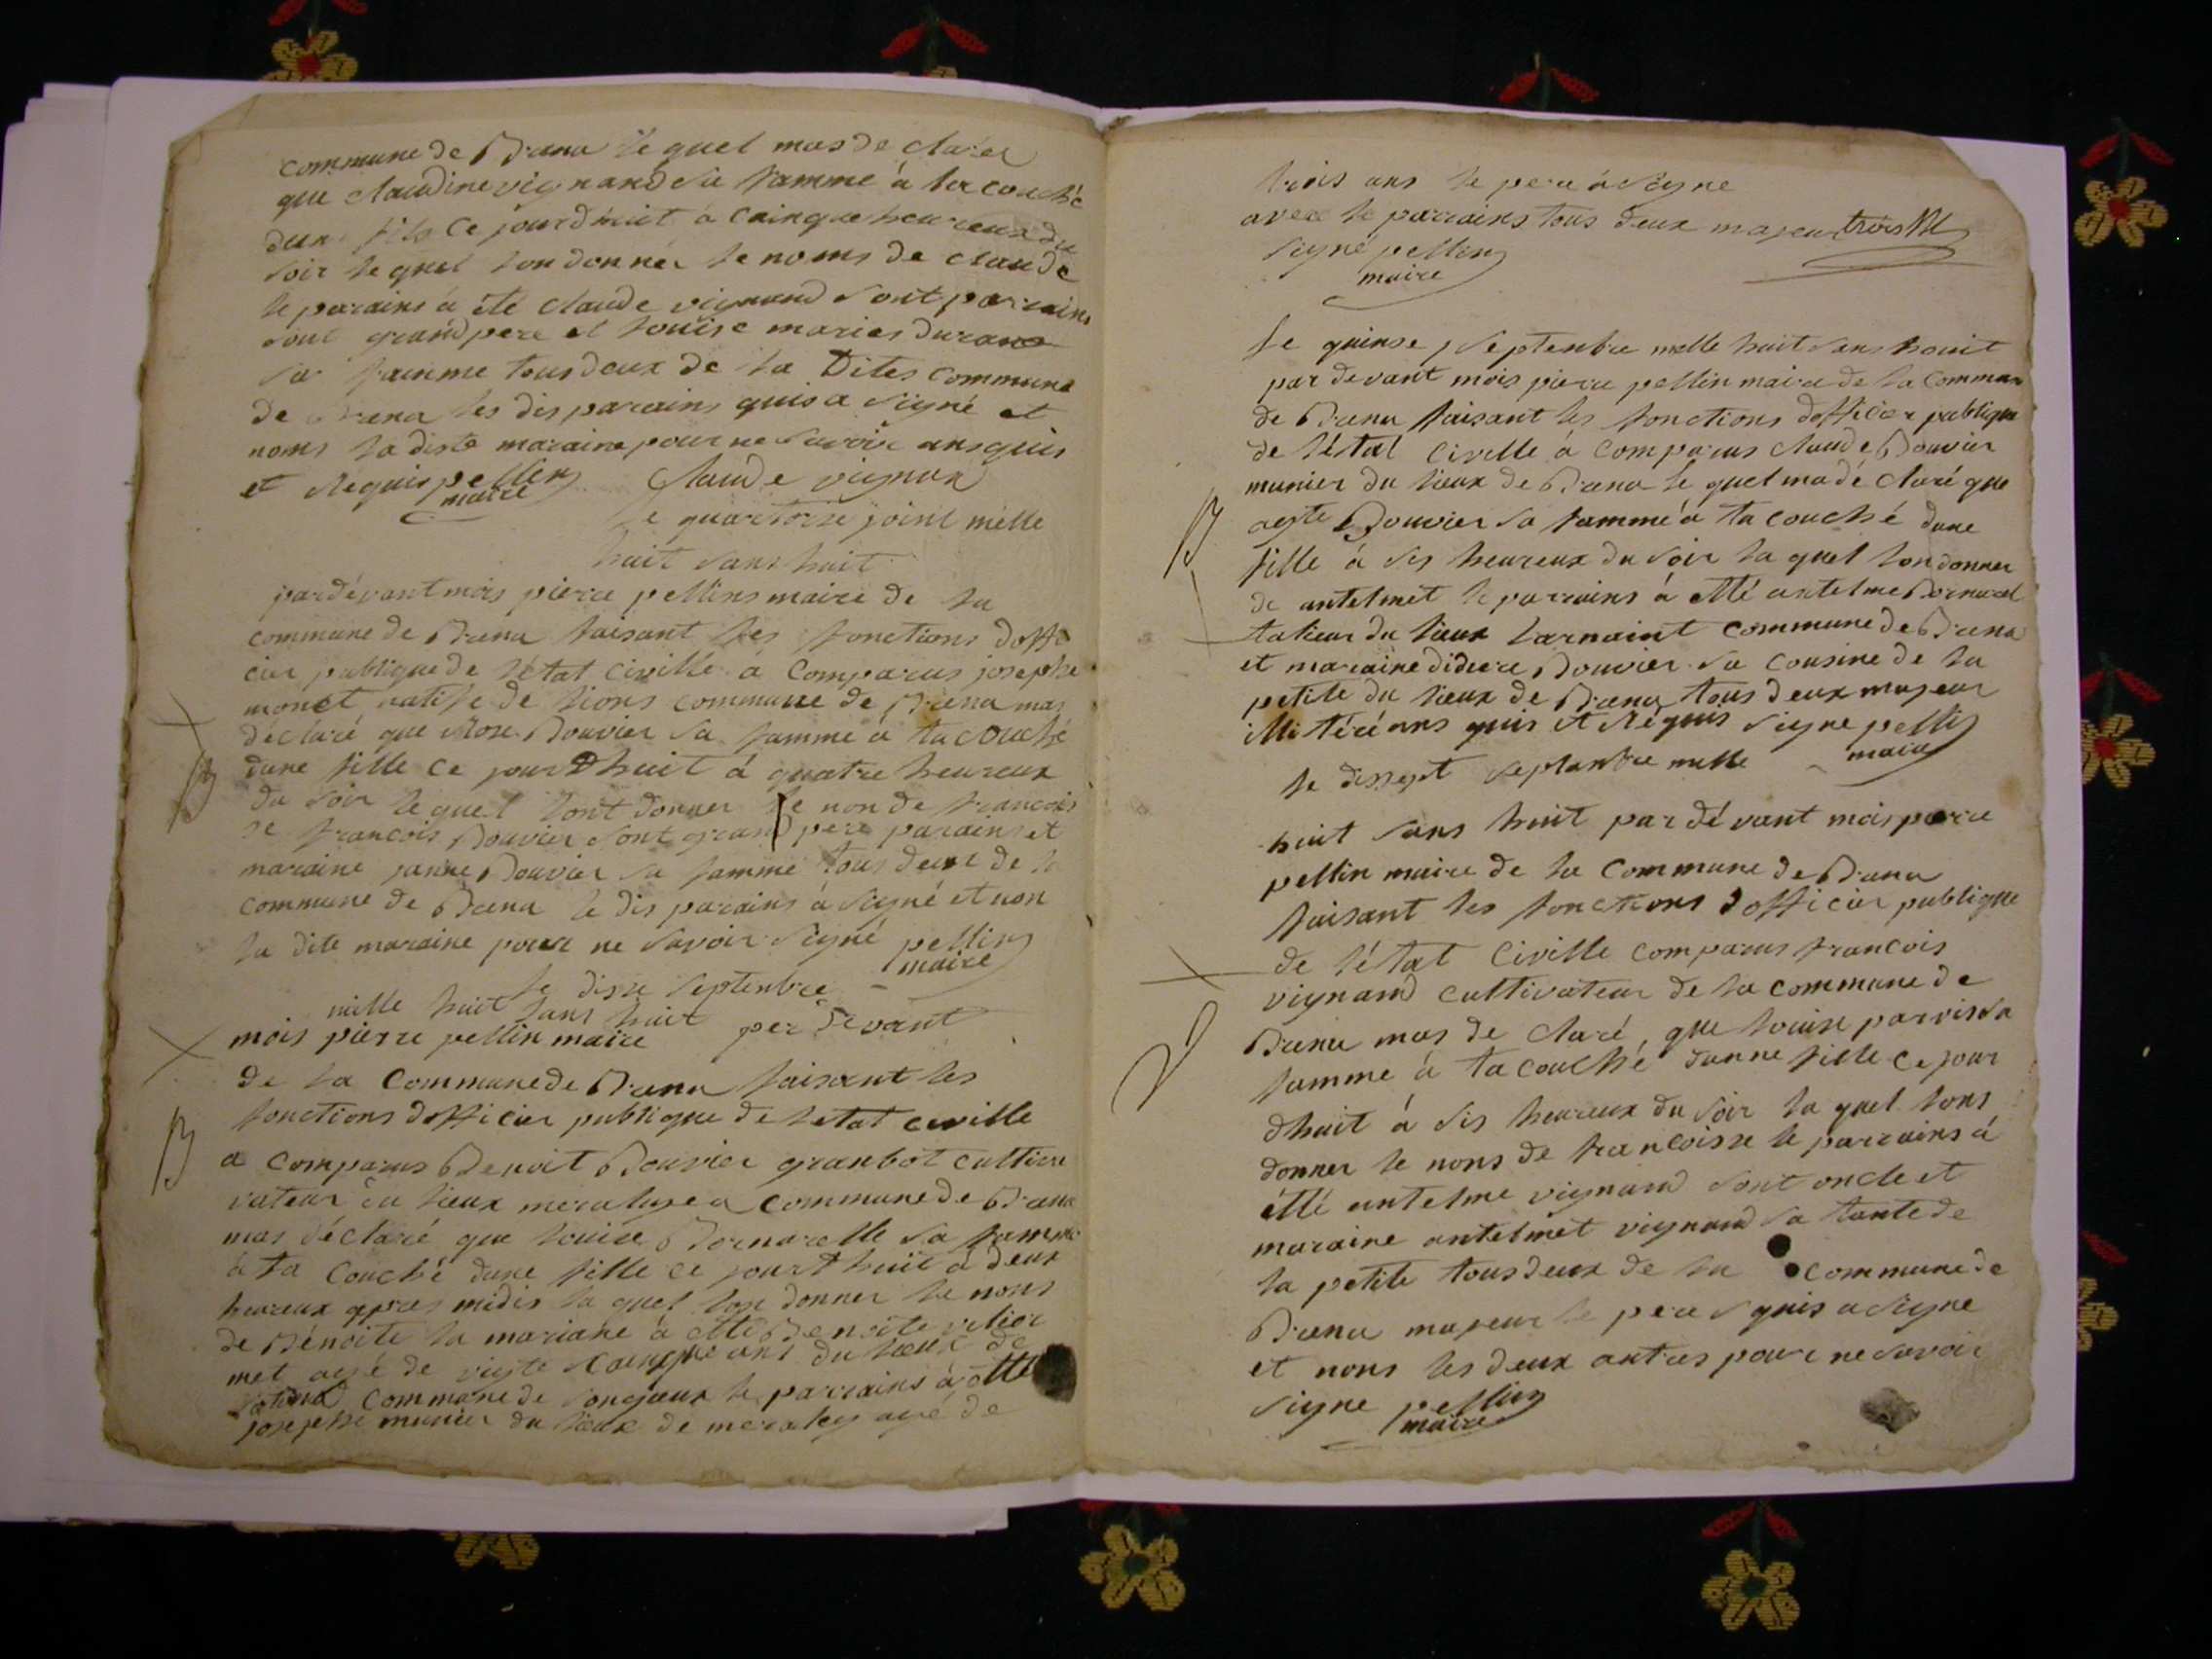 commune de Brena le quel mas de claréz
que claudine vignand sa famme à la couché
dun fils ce jourdhuit à cainque heureux du
soir le quel lon donnér le noms de claude
le parains à été claude vignand sont parrains
sont grand pere et louise maries durand
sa famme tous deux de la Dites commune
de Brena les dis parains quis a signé et
noms la diste maraine pour ne savoir ansquis
et Requis pellin claude vignand
maire
le quartorse joint mille
huit sans huit
pardévant mois pierre pellins maire de la
commune de Brena faisant les fonctions doffi
cier publique de létat civille à comparus josephe
monet natife de lions commune de Brena mas
declaré que Rose Bouvier sa famme à ta couché
dune fille ce jourdhuit à quatre heureux
du soir le quel lont donner le non de francois
se francois Bouvier sont grand pere parains et
maraine janne Bouvier sa famme tous deux de la
commune de Brena le dis parains à signé et non
la dite maraine pour ne savoir signé pellin
maire
le disse septenbre
mille huit sans huit per devant
mois pierre pellin maire
de la commune de Brena faisant les
fonctions dofficier publique de letat civille
B
a comparus Benoit Bouvier granbot cultiva
vateur du lieux commune de Brena
mas déclaré que louise Bornarelle sa famme
à ta couché dune fille ce jourdhuit à deux
heureux apres midis la quel lon donner le nons
de Bénoite la mariane à etté Benoite
met agé de vigte cainque ans du lieux de
commune de songieux le parrains à etté
josephe munier du lieux de agé de
trois ans le pere à signe
avec le parrains tous deux majeur trois
signé pellin
maire
le quinse septenbre mille huit sans houit
par devant mois pierre pellin maire de la commune
de Brena faisant les fonctions dofficier publique
de létat civille à comparus claude Bouvier
munier du lieux de Brena le quel ma dé claré que
B
agte Bouvier sa famme à ta couché dune
fille à sis heureux du soir la quel lon donner
de antelmet le parrains à etté antelme Bornarel
talieur du lieux larnaint commune de Brena
et maraine didiere Bouvier sa cousine de la
petite du lieux de Brena tous deux majeur
illitéré ans quis et Réquis signe pellin
maire
le dissept septanbre mille
huit sans huit par dévant mois pierre
pellin maire de la commune de Brena
faisant les fonctions dofficier publique
de létat civille comparus francois
vignand cultivateur de la commune de
Brena mas de claré que louise parvis sa
famme à ta couché danne fille ce jour
dhuit à sis heureux du soir la quel lons
donner le nons de francoisse le parrains à
etté antelme vignand sont oncle et
maraine antelmet vignand sa tante de
la petite tous deux de la commune de
Brena majeur le pere quis a signe
et nons les deux autres pour ne savoir
signe pellin
maire